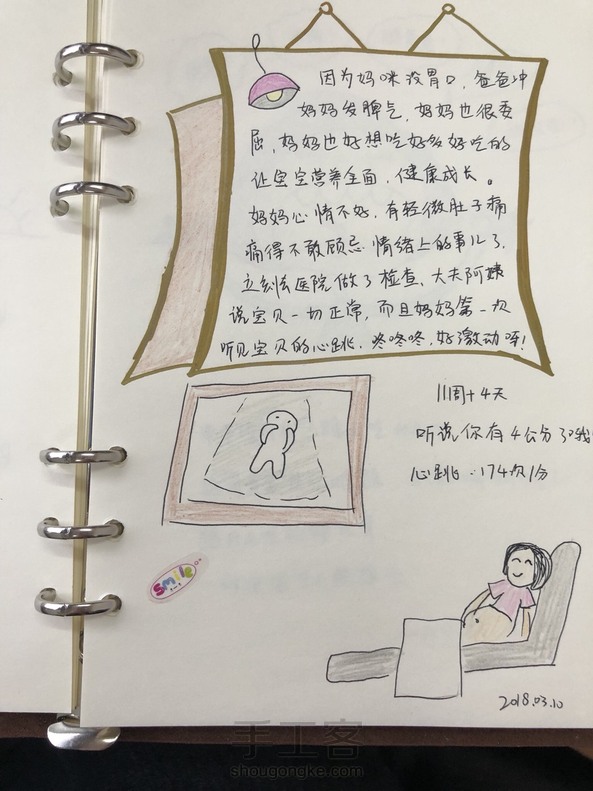 因为妈咪没胃口，爸爸冲
妈妈发脾气，妈妈也很委
屈，妈妈也好想吃好多好吃的
让宝宝营养全面，健康成长。
妈妈心情不好，有轻微肚子痛
痛得不敢顾忌情绪上的事儿了，
立刻去医院做了检查，大夫阿姨
说宝贝一切正常，而且妈妈第一次
听见宝贝的心跳，咚咚咚，好激动呀！
11周+4天
听说你有4公分了
心跳：174次/分
smile
2018.03.10
手工客
shougongke.com